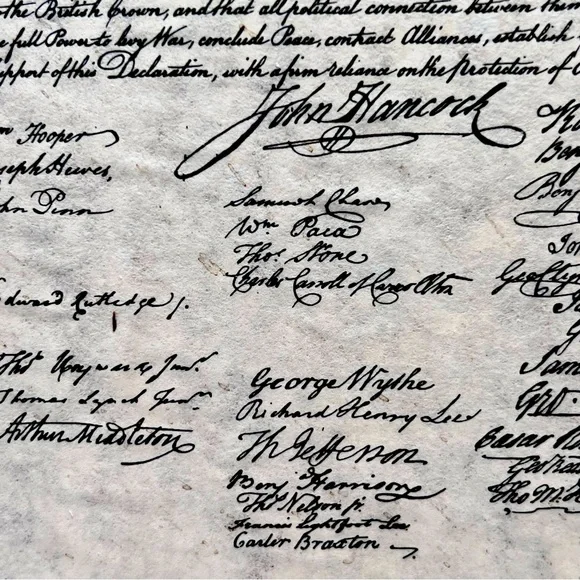 the British Crown, and that all political connection between them
full Power to levy War, conclude Peace, contract Alliances, establish
upport of this Declaration, with a firm reliance on the Protection of
John Hancock
Hooper
oseph Hewes,
ohn Penn
Samuel Chase
Wm Paca
Thos. Stone
Charles Carroll of Carrollton
dward Rutledge J.
Thos Heyward Junr.
Thomas Lynch Junr.
Arthur Middleton
George Wythe
Richard Henry Lee
Th Jefferson
Benj Harrison
Thos Nelson jr.
Francis Lightfoot Lee
Carter Braxton
Geo Cly
Jam
Geo.
Caesar
Tho M